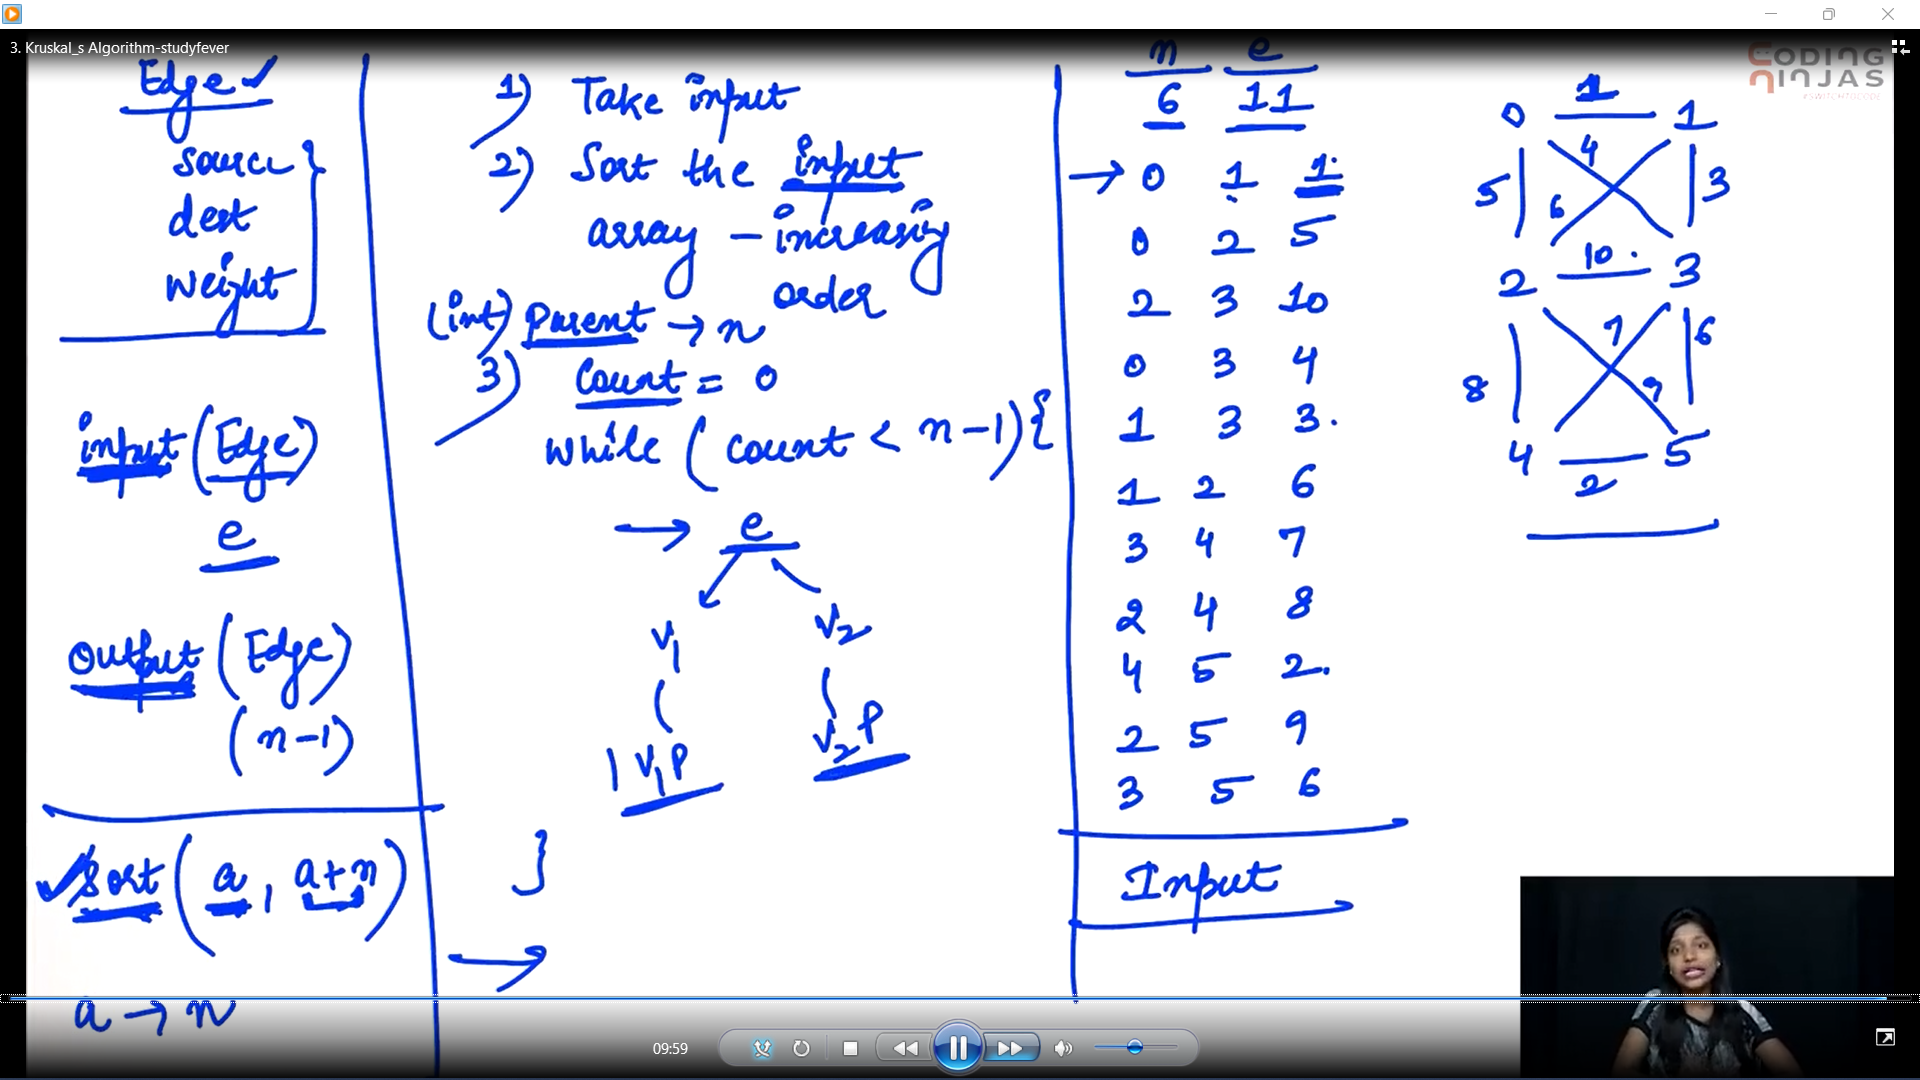 3. Kruskal_s Algorithm-studyfever
CODING
NINJAS
Edge
Source
dest
weight
input (Edge)
e
output (Edge)
(n-1)
Sort (a, a+n)
a → n
1) Take input
2) Sort the input
array - increasing
order
(int) Parent → n
3) Count = 0
while (count < n-1) {
→ e
v1 v2
v1P v2P
}
→
n e
6 11
→ 0 1 1.
0 2 5
2 3 10
0 3 4
1 3 3.
1 2 6
3 4 7
2 4 8
4 5 2.
2 5 9
3 5 6
Input
0 1 1
4
5 6 3
10.
2 3
7 6
8 9
4 5
2
09:59